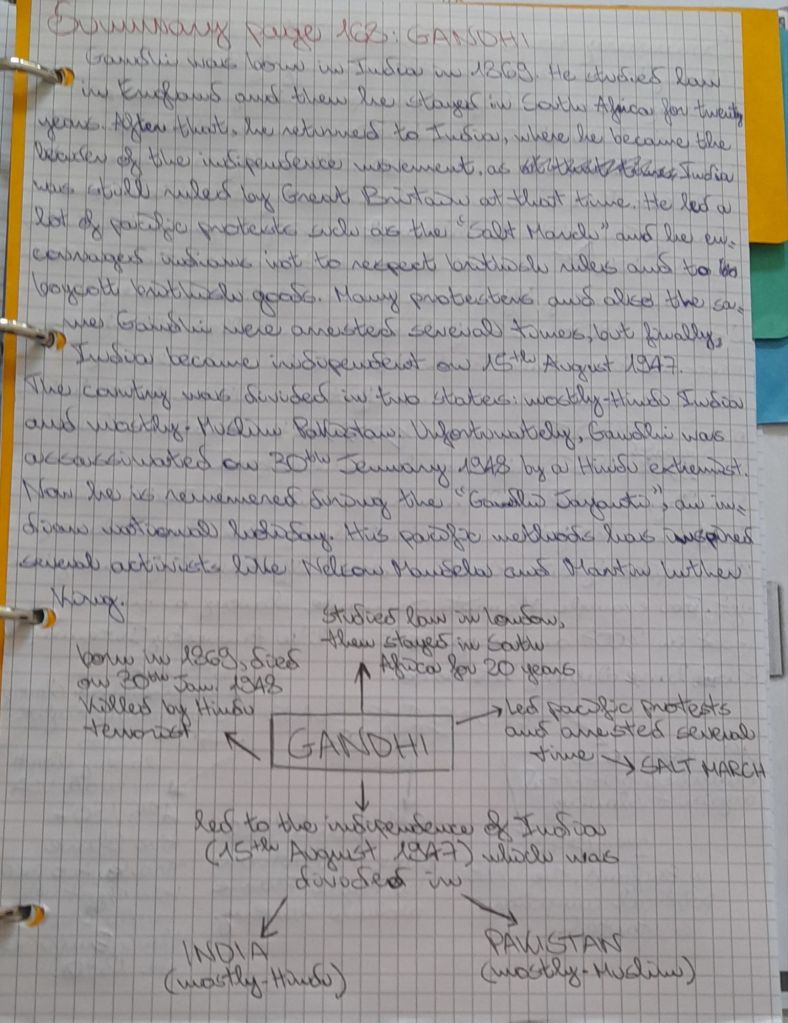 Summary page 163: GANDHI
Gandhi was born in India in 1869. He studied law
in England and then he stayed in South Africa for twenty
years. After that, he returned to India, where he became the
leader of the indipendence movement, as India
was still ruled by Great Britain at that time. He led a
lot of pacific protests such as the "Salt March" and he en=
couraged indians not to respect british rules and to
boycott british goods. Many protesters and also the sa=
me Gandhi were arrested several times, but finally,
India became indipendent on 15th August 1947.
The country was divided in two states: mostly-Hindu India
and mostly-Muslim Pakistan. Unfortunately, Gandhi was
assassinated on 30th January 1948 by a Hindu extremist.
Now he is rememered during the "Gandhi Jayanti", an in=
dian national holiday. His pacific methods has inspired
several activists like Nelson Mandela and Martin Luther
King.
studied law in London,
then stayed in South
Africa for 20 years
born in 1869, died
on 30th Jan. 1948
killed by Hindu
terrorist
GANDHI
led pacific protests
and arrested several
time → SALT MARCH
led to the indipendence of India
(15th August 1947) which was
divided in
INDIA
(mostly-Hindu)
PAKISTAN
(mostly-Muslim)